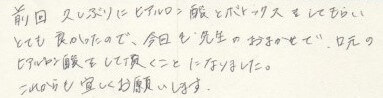 前回 久しぶりにヒアルロン酸とボトックスをしてもらい
とても良かったので、今日も先生のおまかせで、口元の
ヒアルロン酸をして頂くことになりました。
これからも宜しくお願いします。